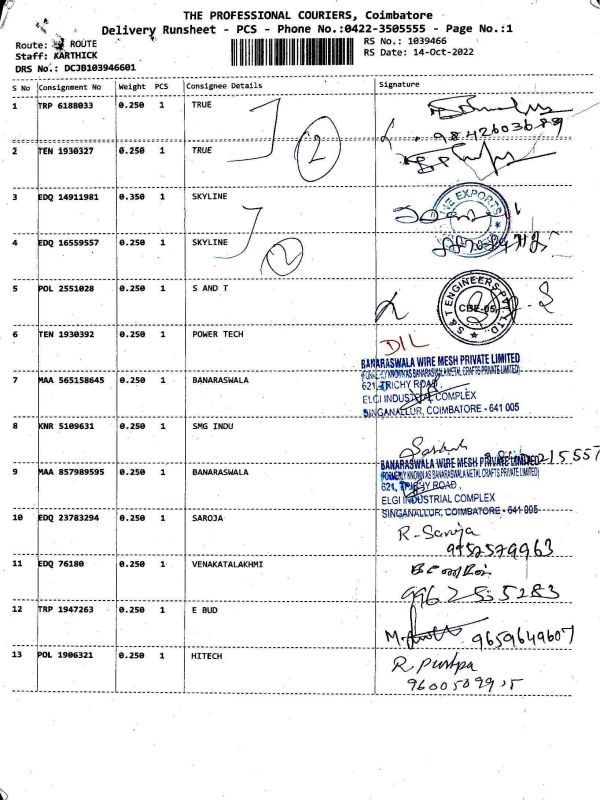 THE PROFESSIONAL COURIERS, Coimbatore
Delivery Runsheet - PCS - Phone No.:0422-3505555 - Page No.:1
Route: ROUTE
Staff: KARTHICK
DRS No.: DCJB103946601
RS No.: 1039466
RS Date: 14-Oct-2022
S No Consignment No Weight PCS Consignee Details Signature
1 TRP 6188033 0.250 1 TRUE
2
2 TEN 1930327 0.250 1 TRUE
3 EDQ 14911981 0.350 1 SKYLINE
2
4 EDQ 16559557 0.250 1 SKYLINE
5 POL 2551028 0.250 1 S AND T
S & T ENGINEERS PVT LTD
CBE-05
6 TEN 1930392 0.250 1 POWER TECH
D/L
BANARASWALA WIRE MESH PRIVATE LIMITED
(FORMERLY KNOWN AS BANARASWALA METAL CRAFTS PRIVATE LIMITED)
7 MAA 565158645 0.250 1 BANARASWALA
621, TRICHY ROAD,
ELGI INDUSTRIAL COMPLEX
SINGANALLUR, COIMBATORE - 641 005
8 KNR 5109631 0.250 1 SMG INDU
BANARASWALA WIRE MESH PRIVATE LIMITED
(FORMERLY KNOWN AS BANARASWALA METAL CRAFTS PRIVATE LIMITED)
9 MAA 857989595 0.250 1 BANARASWALA
621, TRICHY ROAD,
ELGI INDUSTRIAL COMPLEX
SINGANALLUR, COIMBATORE - 641 005
10 EDQ 23783294 0.250 1 SAROJA
R. Saroja
9952579963
11 EDQ 76180 0.250 1 VENAKATALAKHMI
12 TRP 1947263 0.250 1 E BUD
9659649607
13 POL 1906321 0.250 1 HITECH
R. Pushpa